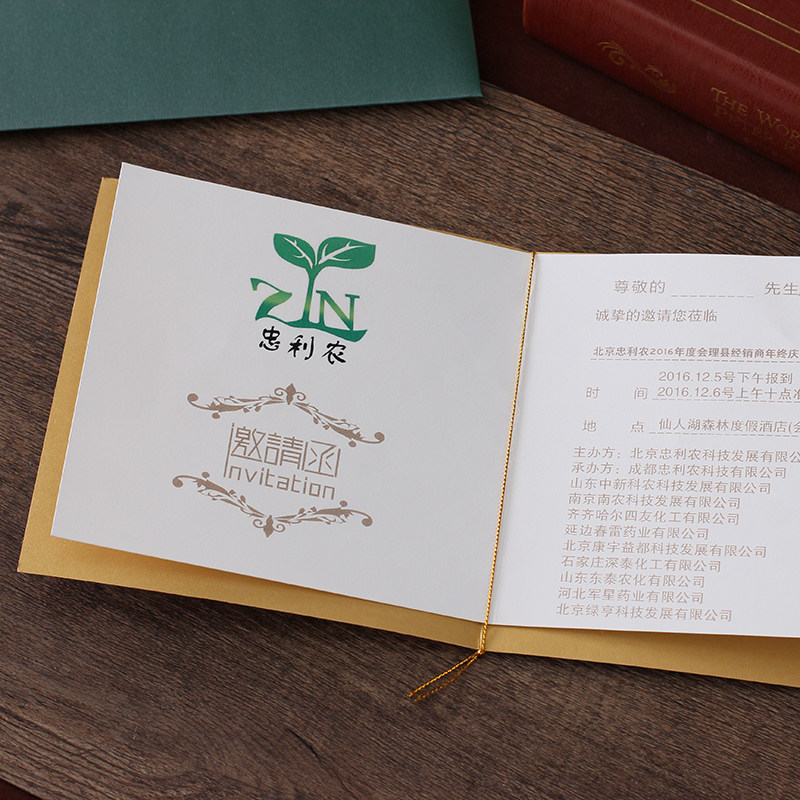 THE WOR
ZLN
忠利农
邀請函
Invitation
尊敬的 先生
诚挚的邀请您莅临
北京忠利农2016年度会理县经销商年终庆
2016.12.5号下午报到
时 间 2016.12.6号上午十点准
地 点 仙人湖森林度假酒店(会
主办方：北京忠利农科技发展有限公
承办方：成都忠利农科技有限公司
山东中新科农科技发展有限公司
南京南农科技发展有限公司
齐齐哈尔四友化工有限公司
延边春雷药业有限公司
北京康宇益都科技发展有限公司
石家庄深泰化工有限公司
山东东泰农化有限公司
河北军星药业有限公司
北京绿亨科技发展有限公司